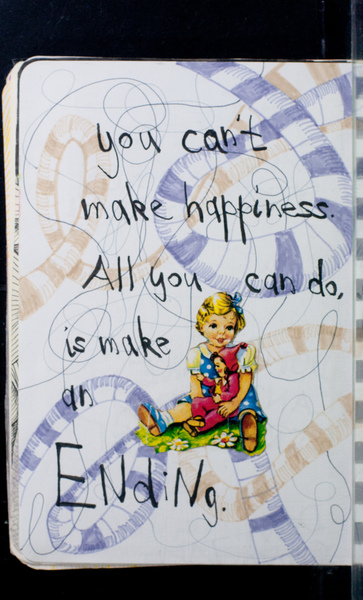 you can't
make happiness.
All you can do,
is make
an
ENdiNg.